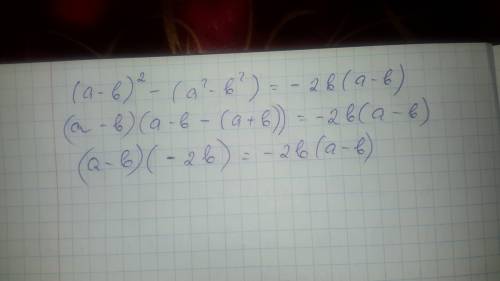 (a-b)² - (a² - b²) = - 2b(a-b)
(a - b)(a-b - (a+b)) = -2b(a-b)
(a-b)( - 2b) = -2b(a-b)